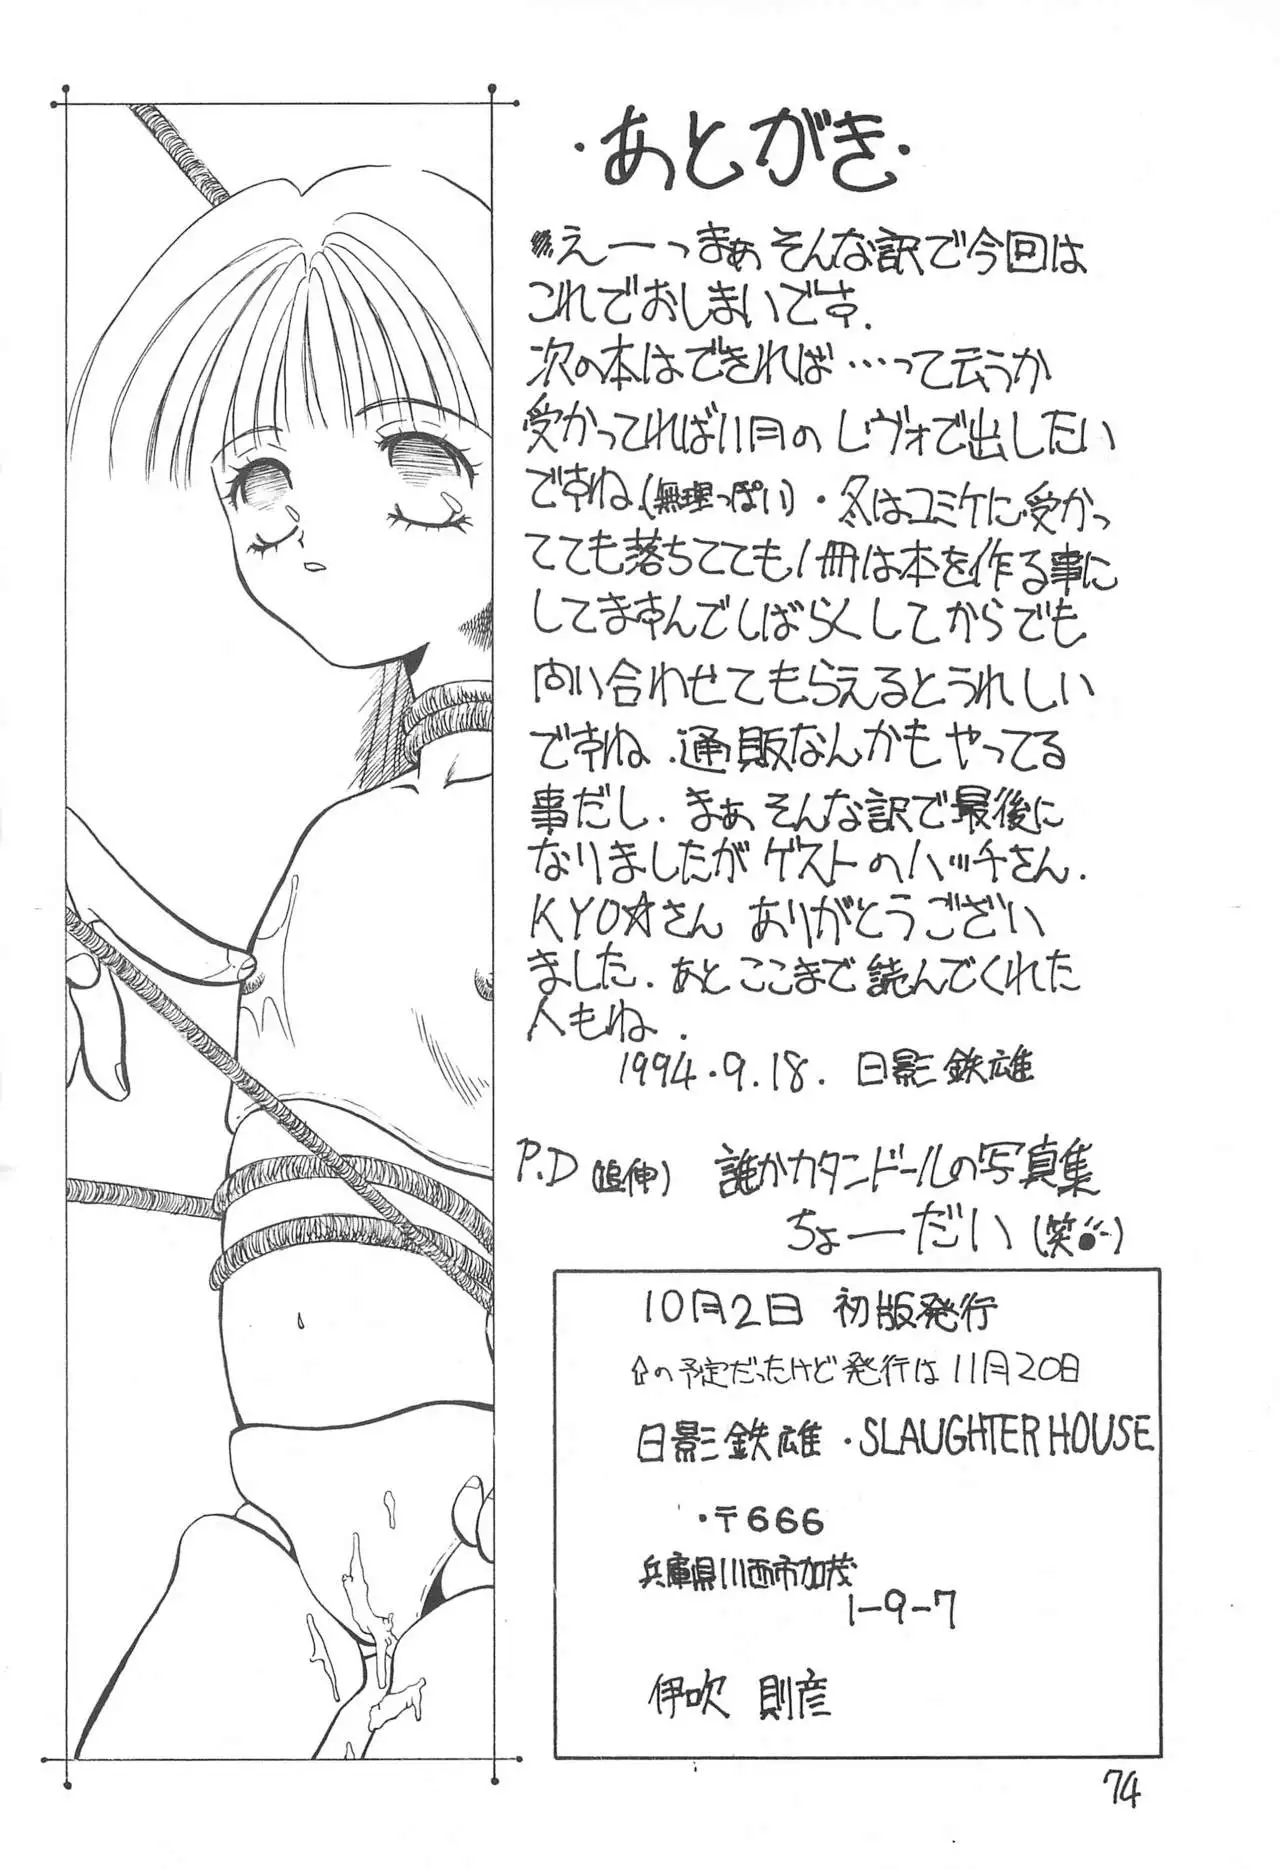 ・あとがき・
えーっまぁそんな訳で今回は
これでおしまいです.
次の本はできれば…って云うか
受かってれば11月のレヴォで出したい
ですね(無理っぽい)・冬はコミケに受かっ
てても落ちてても1冊は本を作る事に
してますんでしばらくしてからでも
問い合わせてもらえるとうれしい
ですね.通販なんかもやってる
事だし.まぁそんな訳で最後に
なりましたがゲストのハッチさん.
KYO☆さんありがとうござい
ました.あとここまで読んでくれた
人もね.
1994.9.18. 日影鉄雄
P.D(追伸) 誰かカタンドールの写真集
ちょーだい(笑)
10月2日 初版発行
⇧の予定だったけど発行は11月20日
日影鉄雄・SLAUGHTER HOUSE
・〒666
兵庫県川西市加茂
1-9-7
伊吹 則彦
74